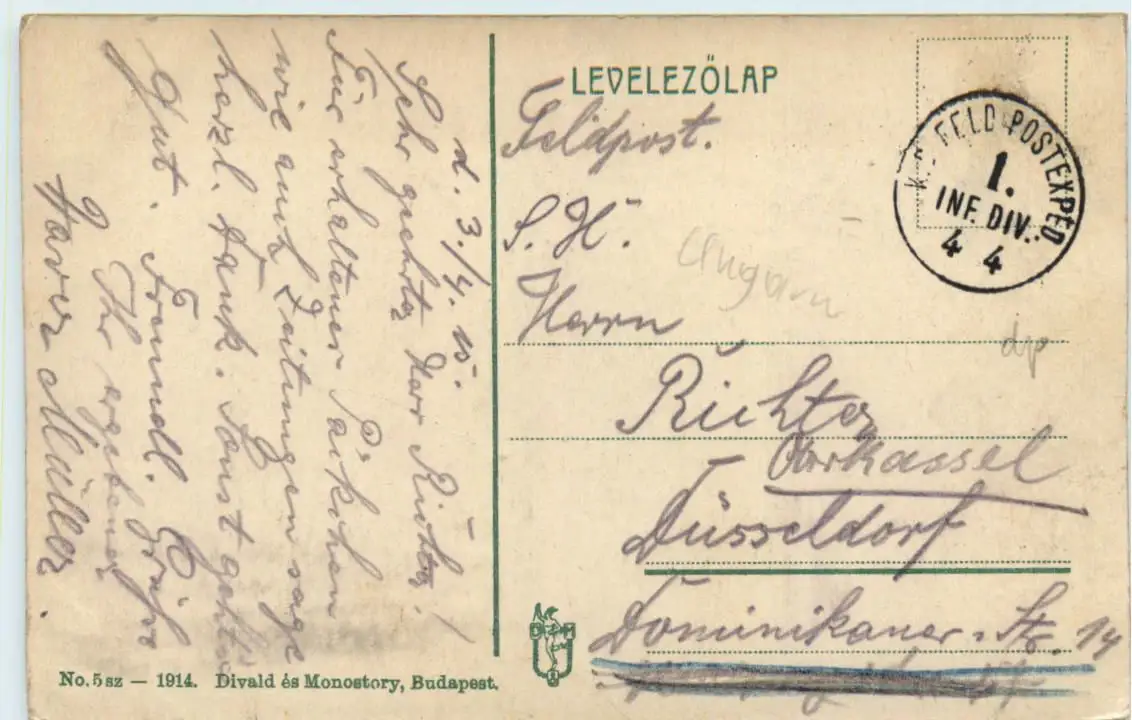 LEVELEZŐLAP
Feldpost.
S. H.
Herrn
Richter
Oberkassel
Düsseldorf
Dominikaner-Str. 14
Ungarn
dp
FELDPOSTEXPED
1.
INF. DIV.
4 4
d. 3./4. 15.
Sehr geehrter Herr Richter!
Für erhaltener Päckchen
wie auch Zeitungen sage
herzl. Dank. Sonst geht es
Gut. Freundl. Grüße
Ihr ergebener
Xaver Müller.
No. 5 sz — 1914. Divald és Monostory, Budapest.